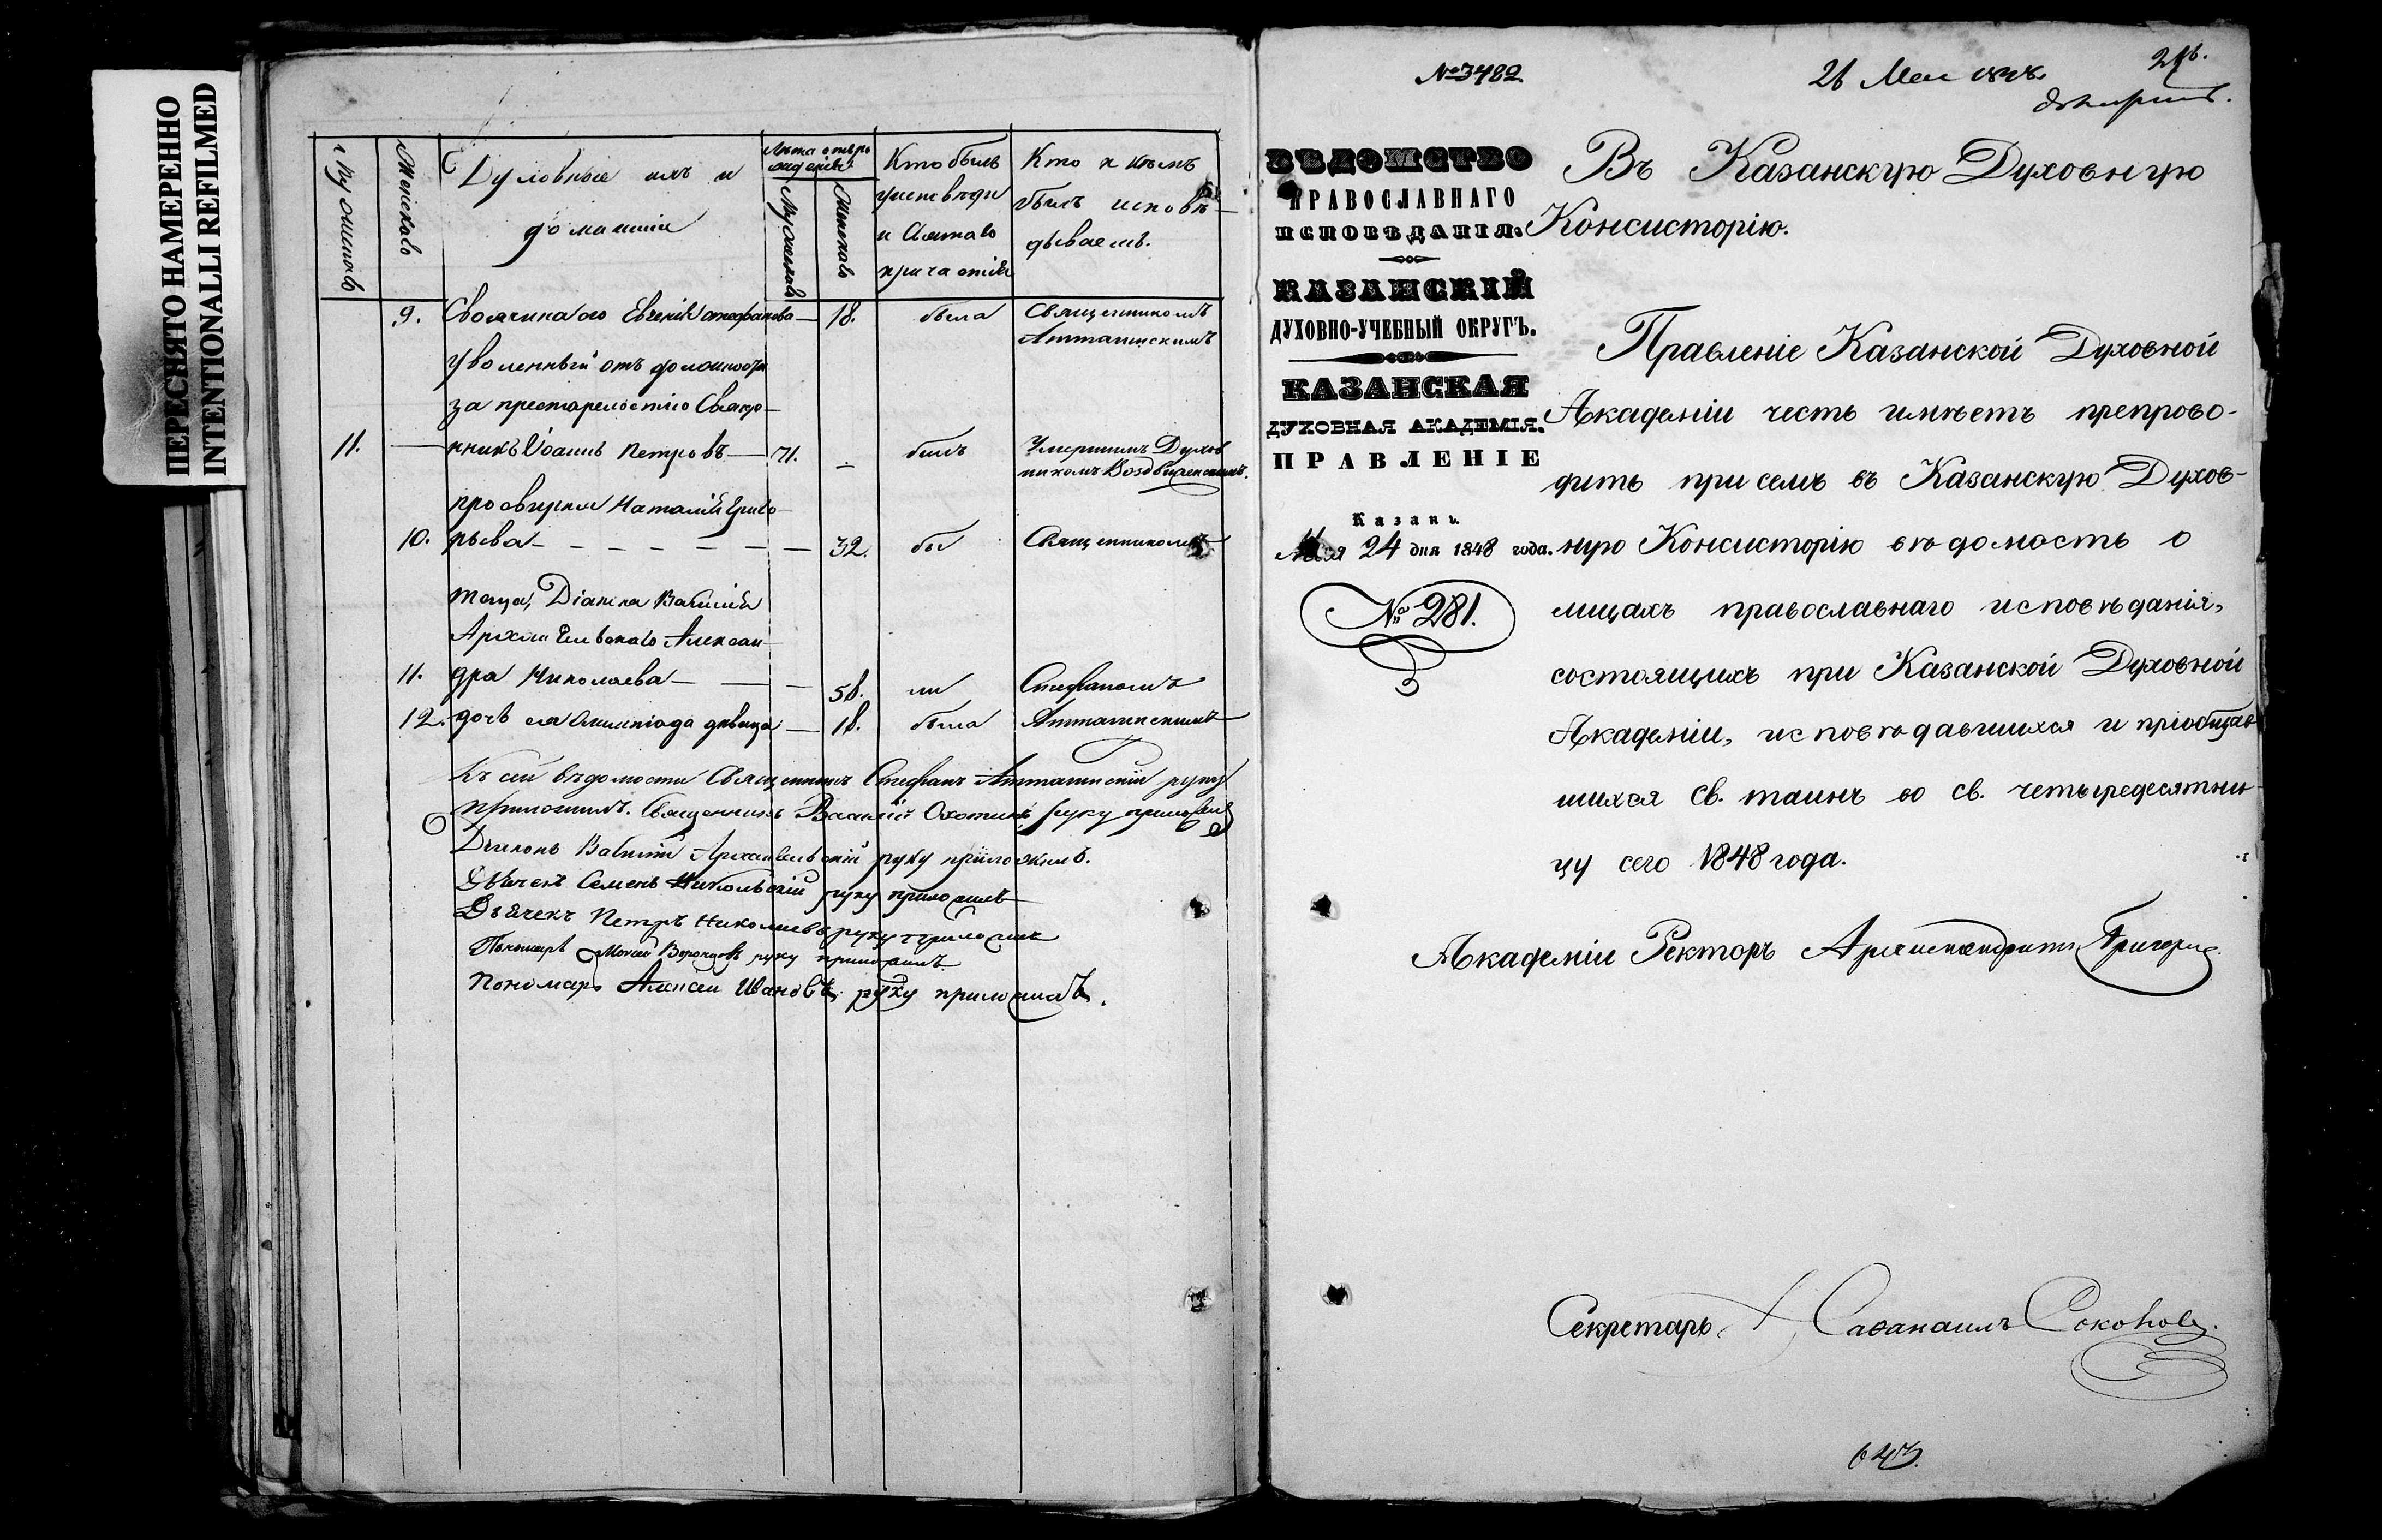 ПЕРЕСНЯТО НАМЕРЕННО
INTENTIONALLI REFILMED
Мужеска
Женскаго
Духовные ихъ и
домашніе
Лѣта отъ рожденія
Мужескаго
Женскаго
Кто былъ
у исповѣди
и Святаго
причастія
Кто и кѣмъ
былъ исповѣ-
дываемъ.
9. Своячина его Евгенія Стефанова — 18. была Священникомъ
Аттатинскимъ
Уволенный отъ должности
за престарелостію Свяще-
11. — нникъ Іоаннъ Петровъ — 71. — былъ Умершимъ Духов
никомъ Воздвиженскимъ.
просвирня Наталія Григо-
10. рьева — 32. бы Священникомъ
теща, Діакона Василія
Архангельскаго Алексан-
11. дра Николаева — 58. Стефаномъ
12. дочь ея Олимпіада дѣвица — 18. была Аттатинскимъ
Къ сей вѣдомости Священникъ Стефанъ Аттатинскій руку
приложилъ. Священникъ Василій Охотинъ руку приложилъ
Діаконъ Василій Архангельскій руку приложилъ.
Дьячекъ Семенъ Никольскій руку приложилъ
Дьячекъ Петръ Николаевъ руку приложилъ
Пономарь Моисей Воронцовъ руку приложилъ.
Пономарь Алексѣй Ивановъ руку приложилъ.
№ 3482.
26 Мая 1848.
ВѢДОМСТВО
ПРАВОСЛАВНАГО
ИСПОВѢДАНІЯ.
КАЗАНСКІЙ
ДУХОВНО-УЧЕБНЫЙ ОКРУГЪ.
КАЗАНСКАЯ
ДУХОВНАЯ АКАДЕМІЯ.
ПРАВЛЕНІЕ
Казань.
Мая 24 дня 1848 года.
№ 281.
Въ Казанскую Духовную
Консисторію.
Правленіе Казанской Духовной
Академіи честь имѣетъ препрово-
дить при семъ въ Казанскую Духов-
ную Консисторію вѣдомость о
лицахъ православнаго исповѣданія,
состоящихъ при Казанской Духовной
Академіи, исповѣдавшихся и пріобщав
шихся св. таинъ во св. четыредесятни-
цу сего 1848 года.
Академіи Ректоръ Архимандритъ Григорій.
Секретарь Савānаилъ Соколовъ.
643.